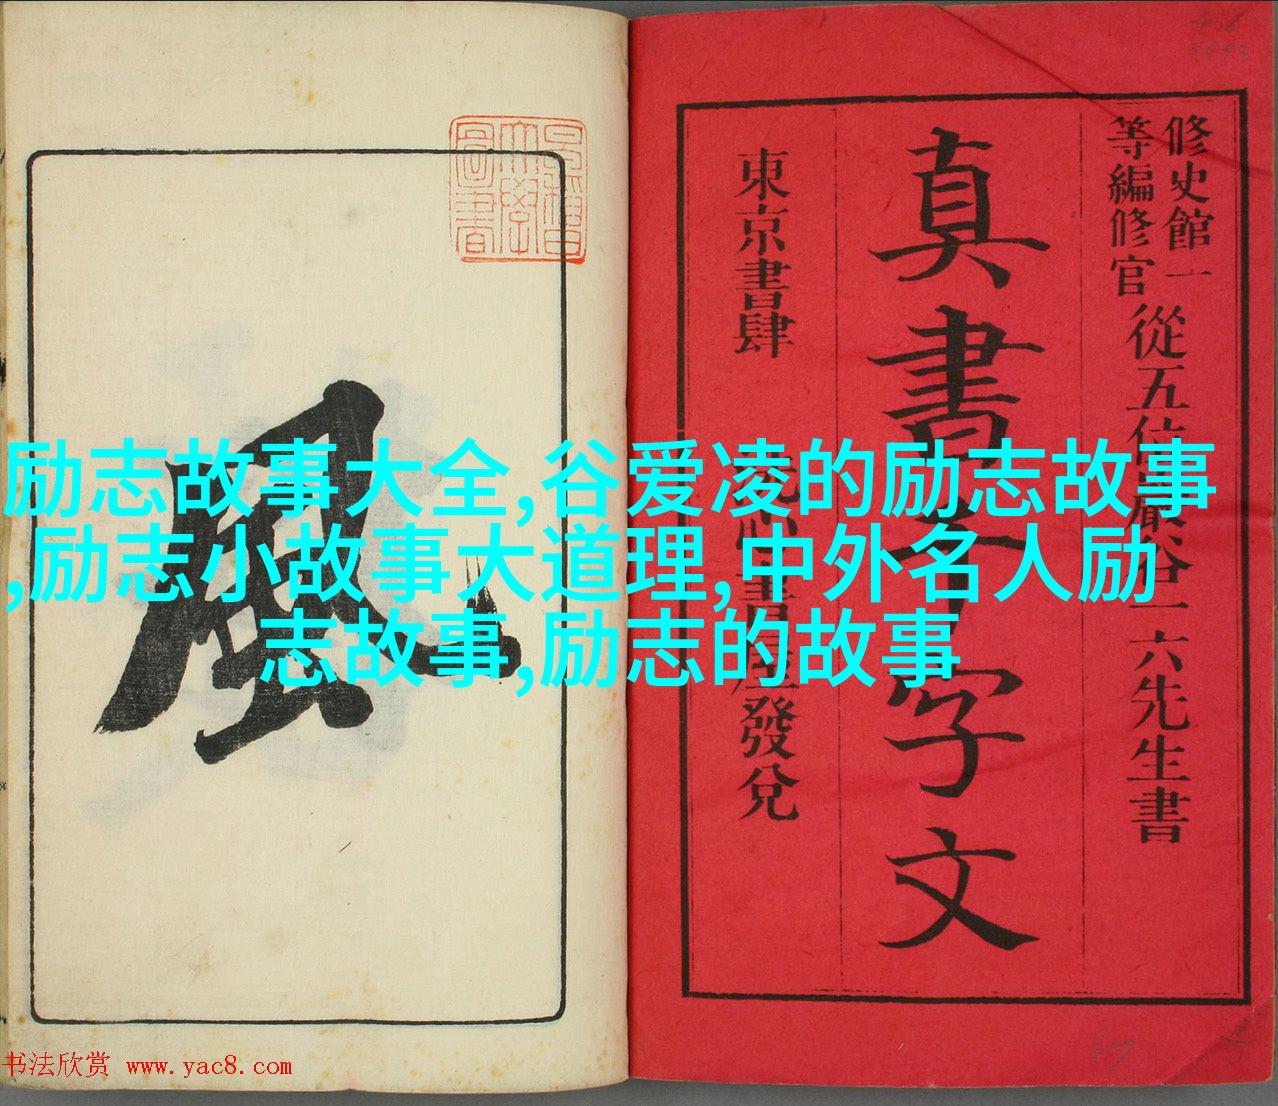 修史館一
等編修官
從五位巖谷一六先生書
真書千字文
東京書肆
書屋發兌
早稻田
大學
圖書
風
励志故事大全,谷爱凌的励志故事
,励志小故事大道理,中外名人励
志故事,励志的故事
书法欣赏 www.yac8.com